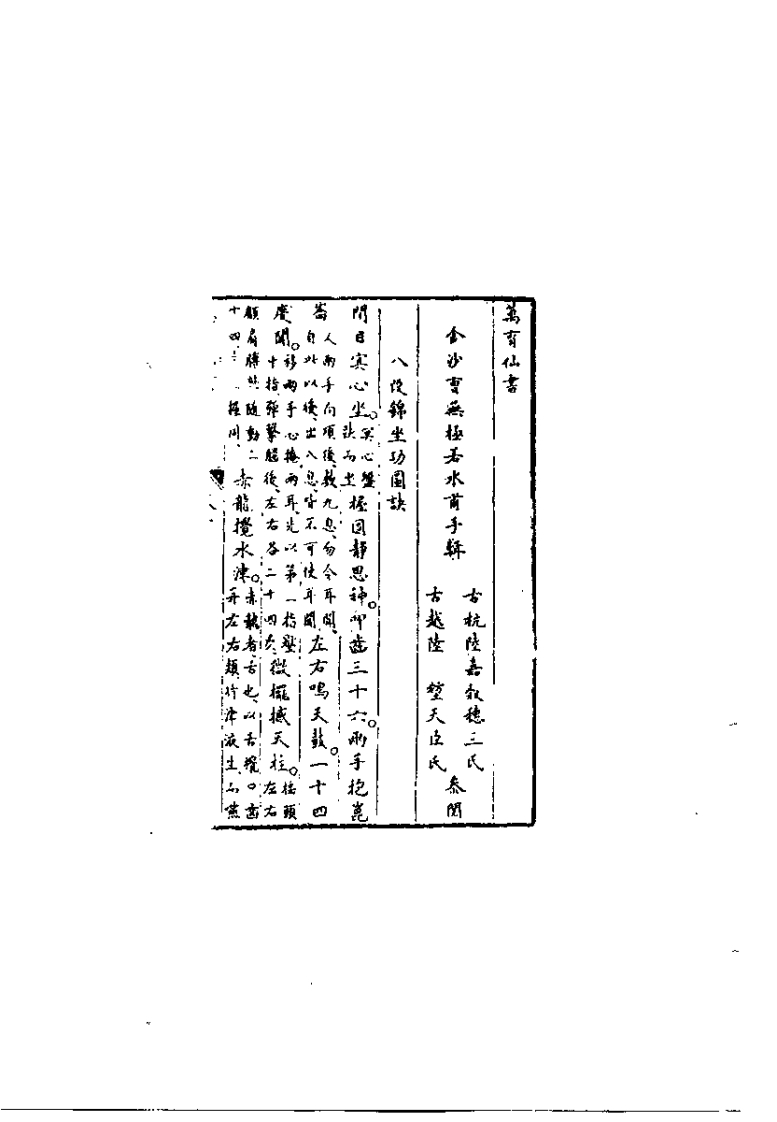 萬育仙書
金沙曹無極若水甫手輯
古杭陸嘉穀穗三氏
古越陸瑩天臣氏
參閱
八段錦坐功圖訣
閉目冥心坐。冥心盤趺而坐握固靜思神。叩齒三十六。兩手抱崑
崙人兩手向項後數九息勿令耳聞自此以後出入息皆不可使耳聞左右鳴天鼓。二十四
度聞。移兩手心掩兩耳先以第二指壓中指彈擊腦後左右各二十四次微擺撼天柱。搖頭左右
顧肩膊隨動二十四握固赤龍攪水津。赤龍者舌也以舌攪口齒并左右頰待津液生而嚥